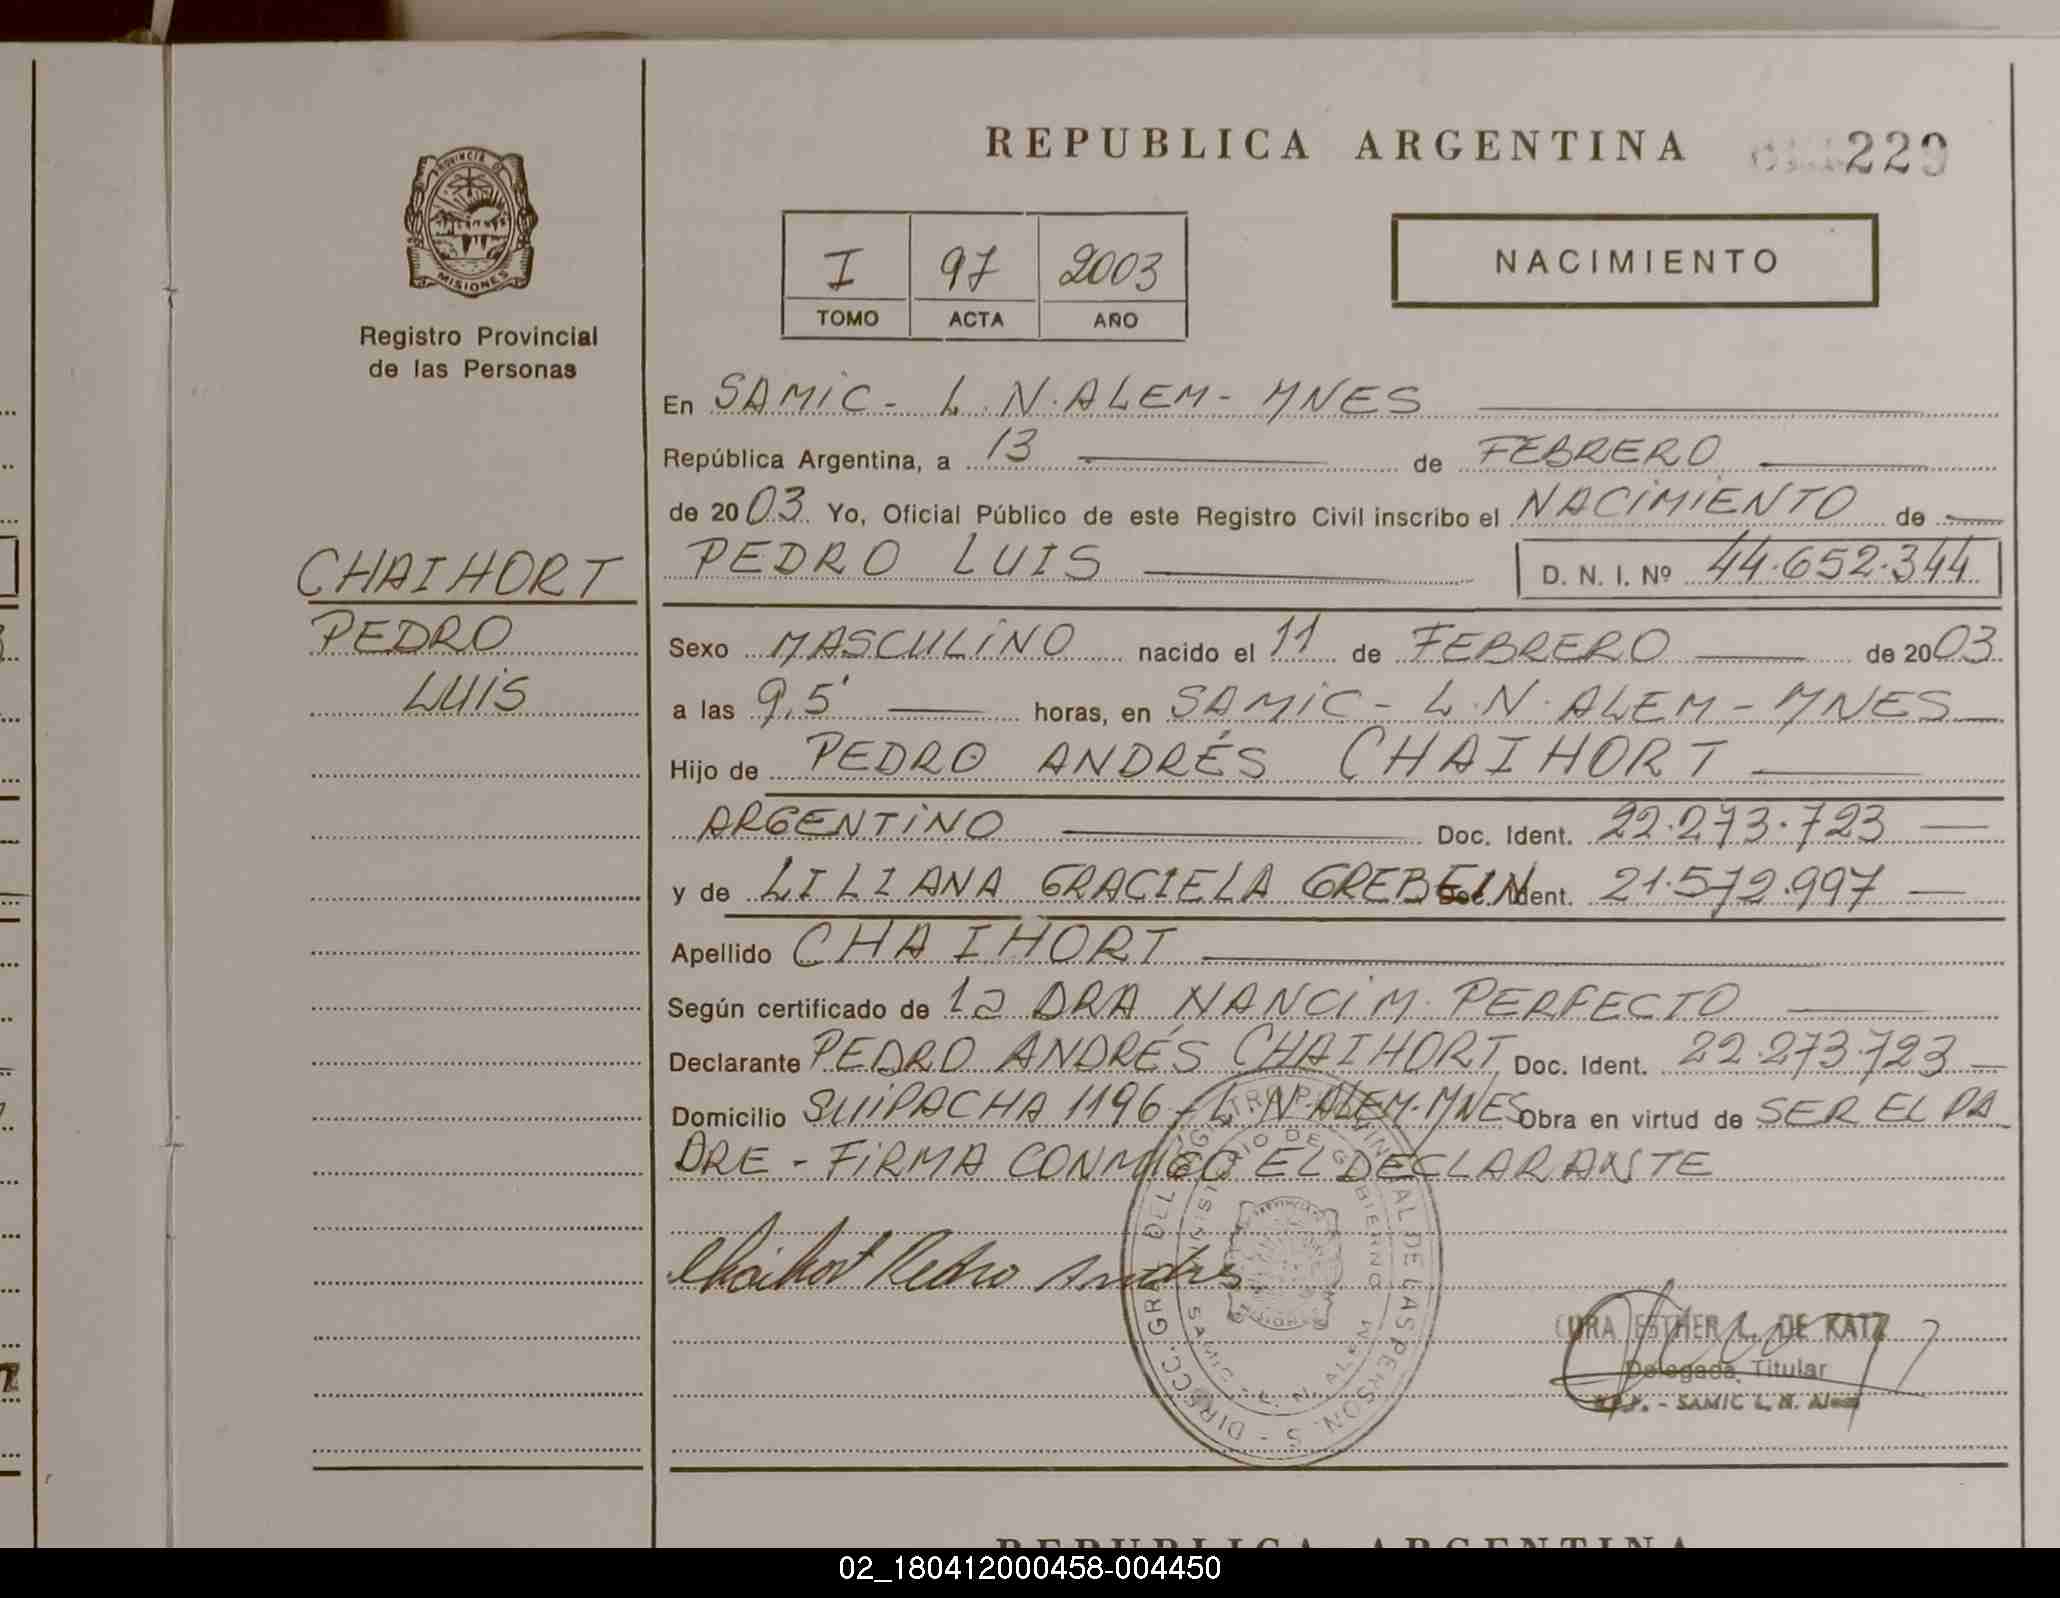 REPUBLICA ARGENTINA
229
PROVINCIA DE
MISIONES
Registro Provincial
de las Personas
I 97 2003
TOMO ACTA AÑO
NACIMIENTO
En SAMIC - L. N. ALEM - MNES
República Argentina, a 13 de FEBRERO
de 2003 Yo, Oficial Público de este Registro Civil inscribo el NACIMIENTO de
PEDRO LUIS D. N. I. Nº 44.652.344
CHAIHORT
PEDRO
LUIS
Sexo MASCULINO nacido el 11 de FEBRERO de 2003
a las 9,5' horas, en SAMIC - L. N. ALEM - MNES
Hijo de PEDRO ANDRÉS CHAIHORT
ARGENTINO Doc. Ident. 22.273.723
y de LILIANA GRACIELA GREBEIN Doc. Ident. 21.572.997
Apellido CHAIHORT
Según certificado de la DRA NANCI M. PERFECTO
Declarante PEDRO ANDRÉS CHAIHORT Doc. Ident. 22.273.723
Domicilio SUIPACHA 1196 - L. N. ALEM - MNES Obra en virtud de SER EL PA
DRE - FIRMA CONMIGO EL DECLARANTE
Chaihort Pedro Andres
DIRECC. GRAL. DEL REGISTRO PROVINCIAL DE LAS PERSONAS
MINISTERIO DE GOBIERNO
SAMIC - L. N. ALEM
ESTHER L. DE KATZ
Delegada Titular
R.P.P. - SAMIC L. N. Alem
REPUBLICA ARGENTINA
02_180412000458-004450